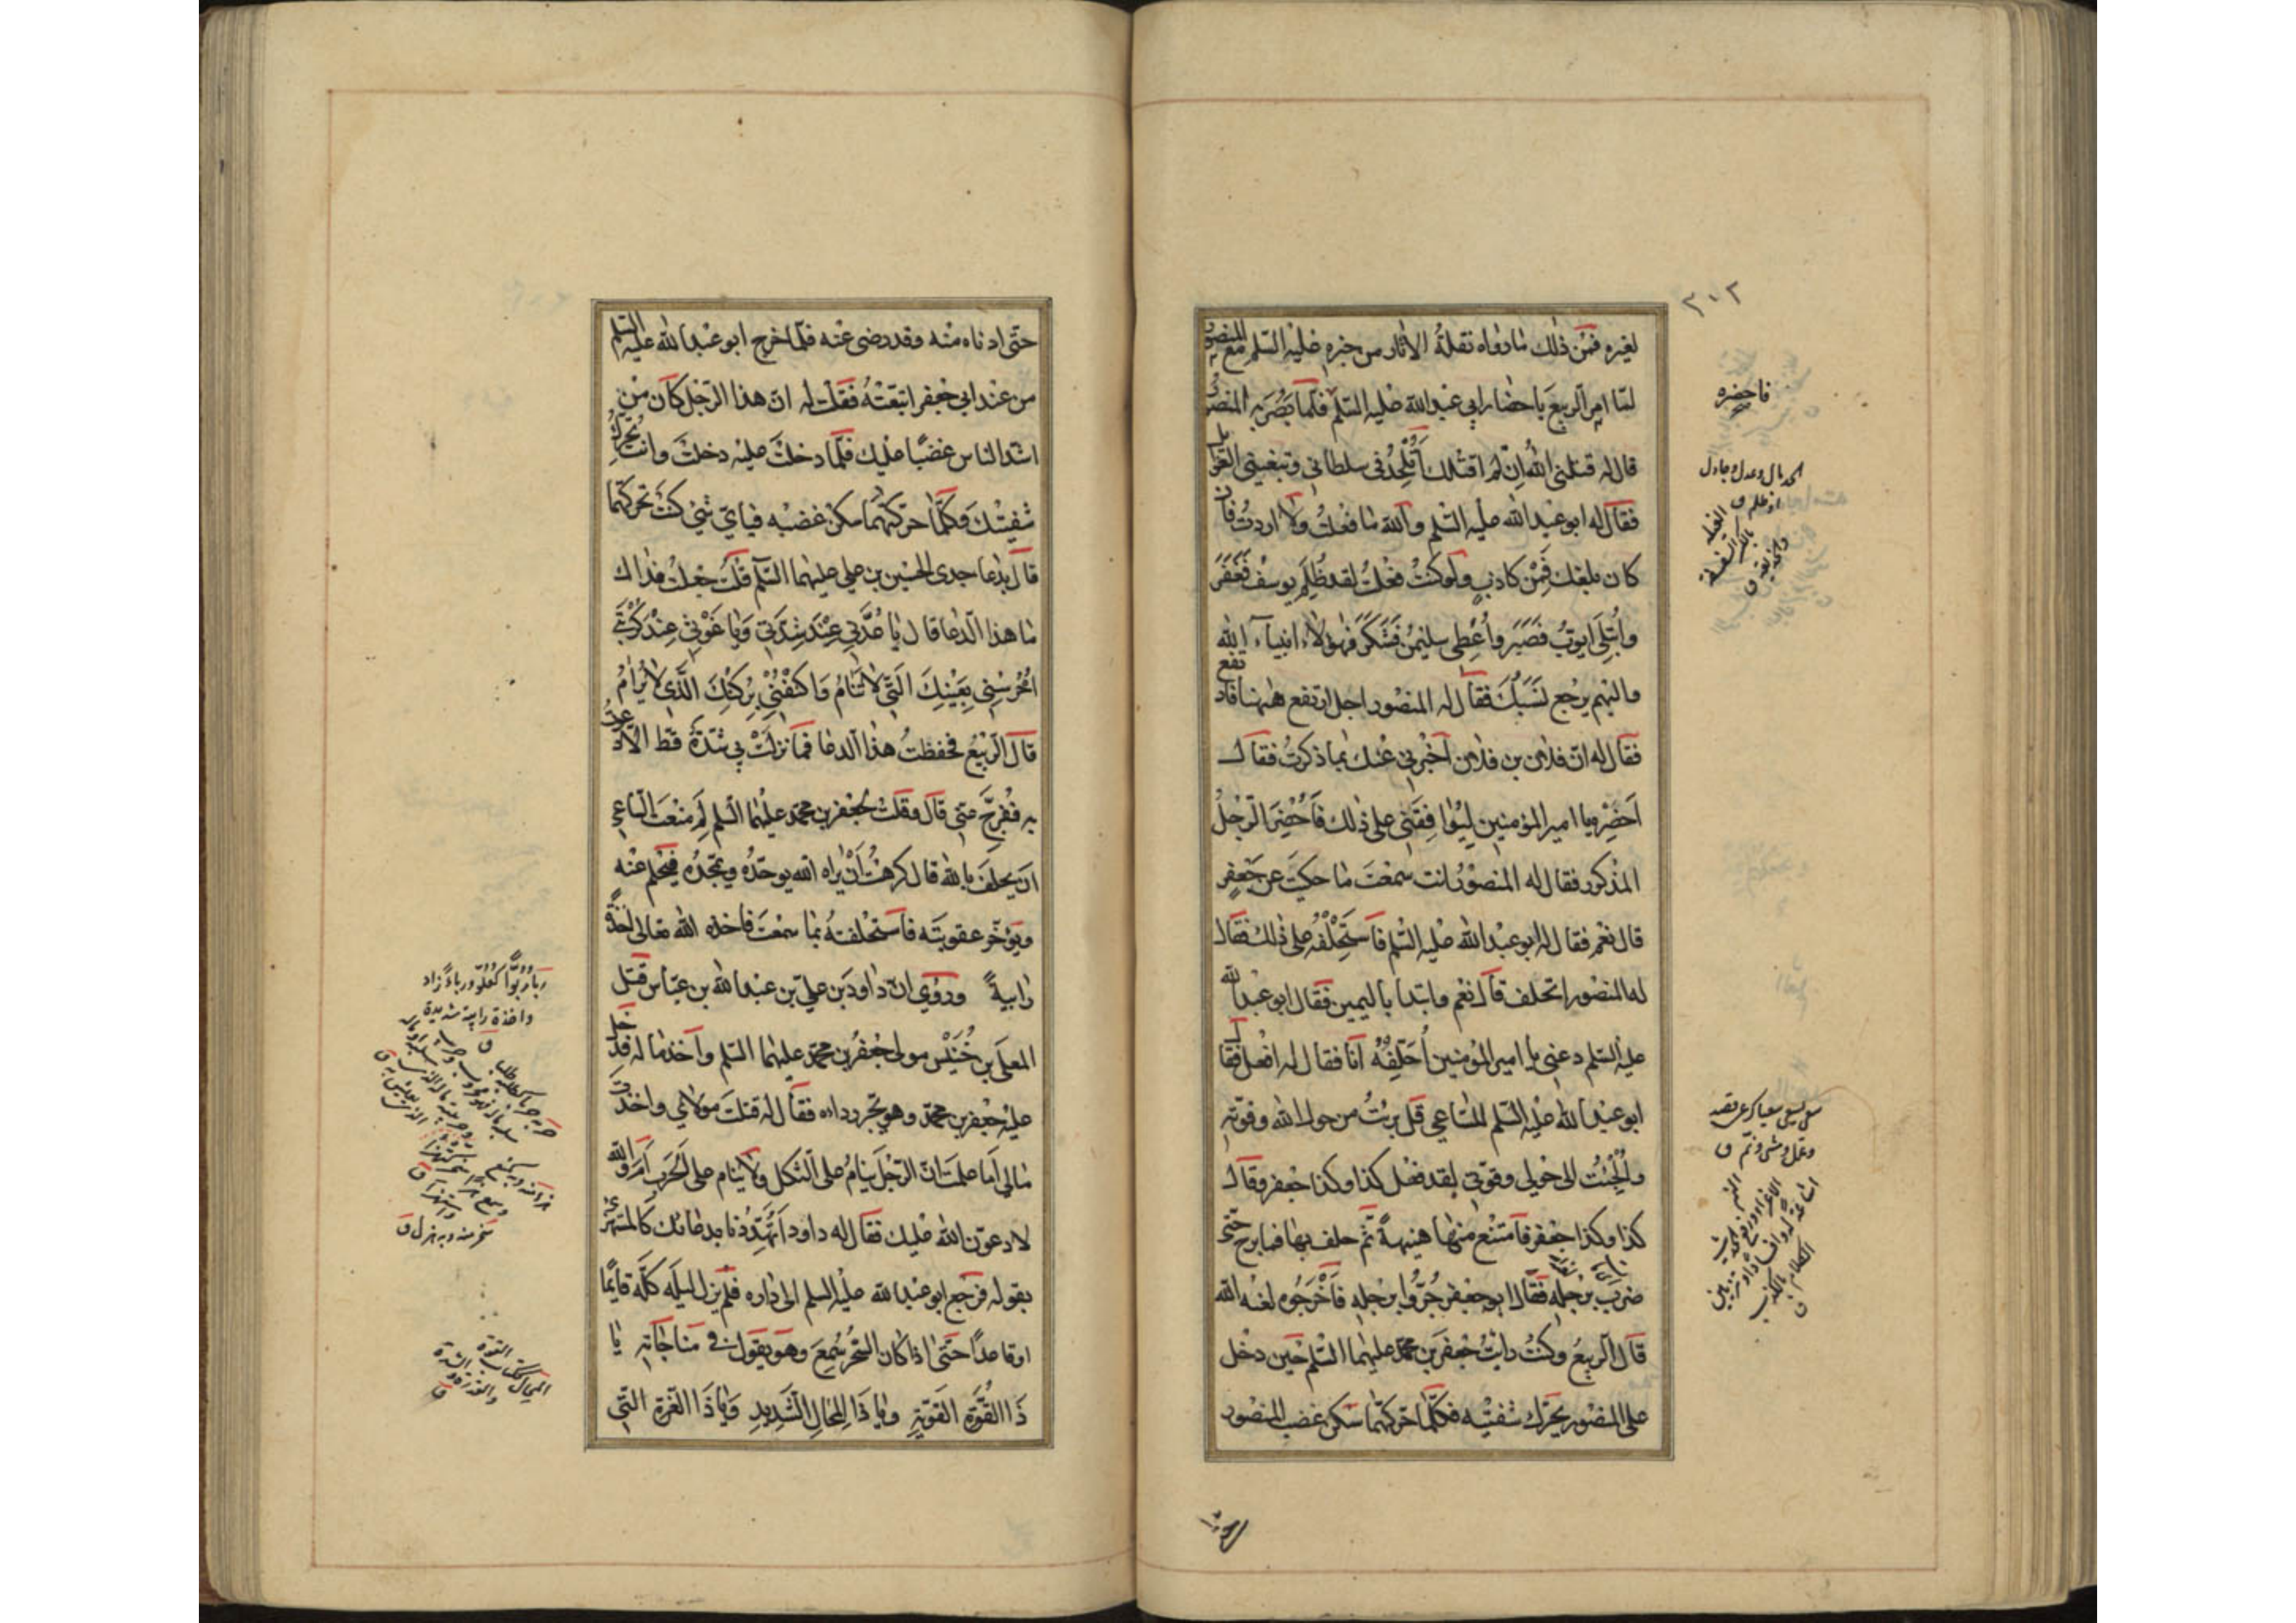 ٣٠٢
لغيره فمن ذلك ما رواه نقلة الاثار من خبره عليه السلم مع المنصور
لما امر الربيع باحضار ابي عبدالله عليه السلم فلما بصر به المنصور
قال له قتلني الله ان لم اقتلك أتلحد في سلطاني وتبغيني الغوايل
فقال له ابو عبدالله عليه السلم والله ما فعلت ولا اردت فان
كان بلغك فمن كاذب ولو كنت فعلت لقد ظلم يوسف فغفر
وابتلي ايوب فصبر وأعطي سليمن فشكر فهؤلاء انبياء الله
واليهم يرجع نسبك فقال له المنصور اجل ارتفع ههنا فارتفع
فقال له ان فلان بن فلان اخبرني عنك بما ذكرت فقال
احضره يا امير المؤمنين ليوافقني على ذلك فأحضر الرجل
المذكور فقال له المنصور انت سمعت ما حكيت عن جعفر
قال نعم فقال له ابو عبدالله عليه السلم فاستحلفه على ذلك فقال
له المنصور اتحلف قال نعم وابتدا باليمين فقال ابو عبدالله
عليه السلم دعني يا امير المؤمنين أحلفه انا فقال له افعل فقال
ابو عبدالله عليه السلم للساعي قل برئت من حول الله وقوته
والجئت الى حولي وقوتي لقد فعل كذا وكذا جعفر وقال
كذا وكذا جعفر فامتنع منها هنيهة ثم حلف بها فما برح حتى
ضرب برجله فقال ابو جعفر جروا برجله فأخرجوه لعنه الله
قال الربيع وكنت رايت جعفر بن محمد عليهما السلم حين دخل
على المنصور يحرك شفتيه فكلما حركهما سكن غضب المنصور
فاحضره
حتى ادناه منه وقد رضي عنه فلما خرج ابو عبدالله عليه السلم
من عند ابي جعفر اتبعته فقلت له ان هذا الرجل كان من
اشد الناس غضبا عليك فلما دخلت عليه دخلت وانت تحرك
شفتيك وكلما حركتهما سكن غضبه فباي شيء كنت تحركهما
قال بدعا جدي الحسين بن علي عليهما السلم قلت جعلت فداك
ما هذا الدعا قال يا عدتي عند شدتي ويا غوثي عند كربتي
احرسني بعينك التي لا تنام واكنفني بركنك الذي لا يرام
قال الربيع فحفظت هذا الدعا فما نزلت بي شدة قط الا دعوت
به ففرج عني قال وقلت لجعفر بن محمد عليهما السلم لم منعت الساعي
ان يحلف بالله قال كرهت أن يراه الله يوحده ويمجده فيحلم عنه
ويؤخر عقوبته فاستحلفته بما سمعت فاخذه الله تعالى اخذة
رابية وروي ان داود بن علي بن عبدالله بن عباس قتل
المعلى بن خنيس مولى جعفر بن محمد عليهما السلم واخذ ماله فدخل
عليه جعفر بن محمد وهو يجر رداءه فقال له قتلت مولاي واخذت
مالي اما علمت ان الرجل ينام على الثكل ولا ينام على الحرب اما والله
لادعون الله عليك فقال له داود أتهددنا بدعائك كالمستهزئ
بقوله فرجع ابو عبدالله عليه السلم الى داره فلم يزل ليله كله قايما
وقاعدا حتى اذا كان السحر سمع وهو يقول في مناجاته يا
ذا القوة القوية ويا ذا المحال الشديد ويا ذا العزة التي